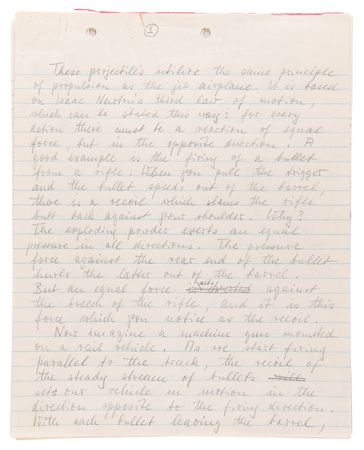 1
These projectiles utilize the same principle
of propulsion as the jet airplane. It is based
on Isaac Newton's third law of motion,
which can be stated this way: for every
action there must be a reaction of equal
force, but in the opposite direction. A
good example is the firing of a bullet
from a rifle. When you pull the trigger
and the bullet speeds out of the barrel,
there is a recoil which slams the rifle
butt back against your shoulder. Why?
The exploding powder exerts an equal
pressure in all directions. The pressure
force against the rear end of the bullet
hurls the latter out of the barrel.
But an equal force reacts against
the breech of the rifle and it is this
force which you notice as the recoil.
Now imagine a machine gun mounted
on a rail vehicle. As we start firing
parallel to the track, the recoil of
the steady stream of bullets
sets our vehicle in motion in the
direction opposite to the firing direction.
With each bullet leaving the barrel,